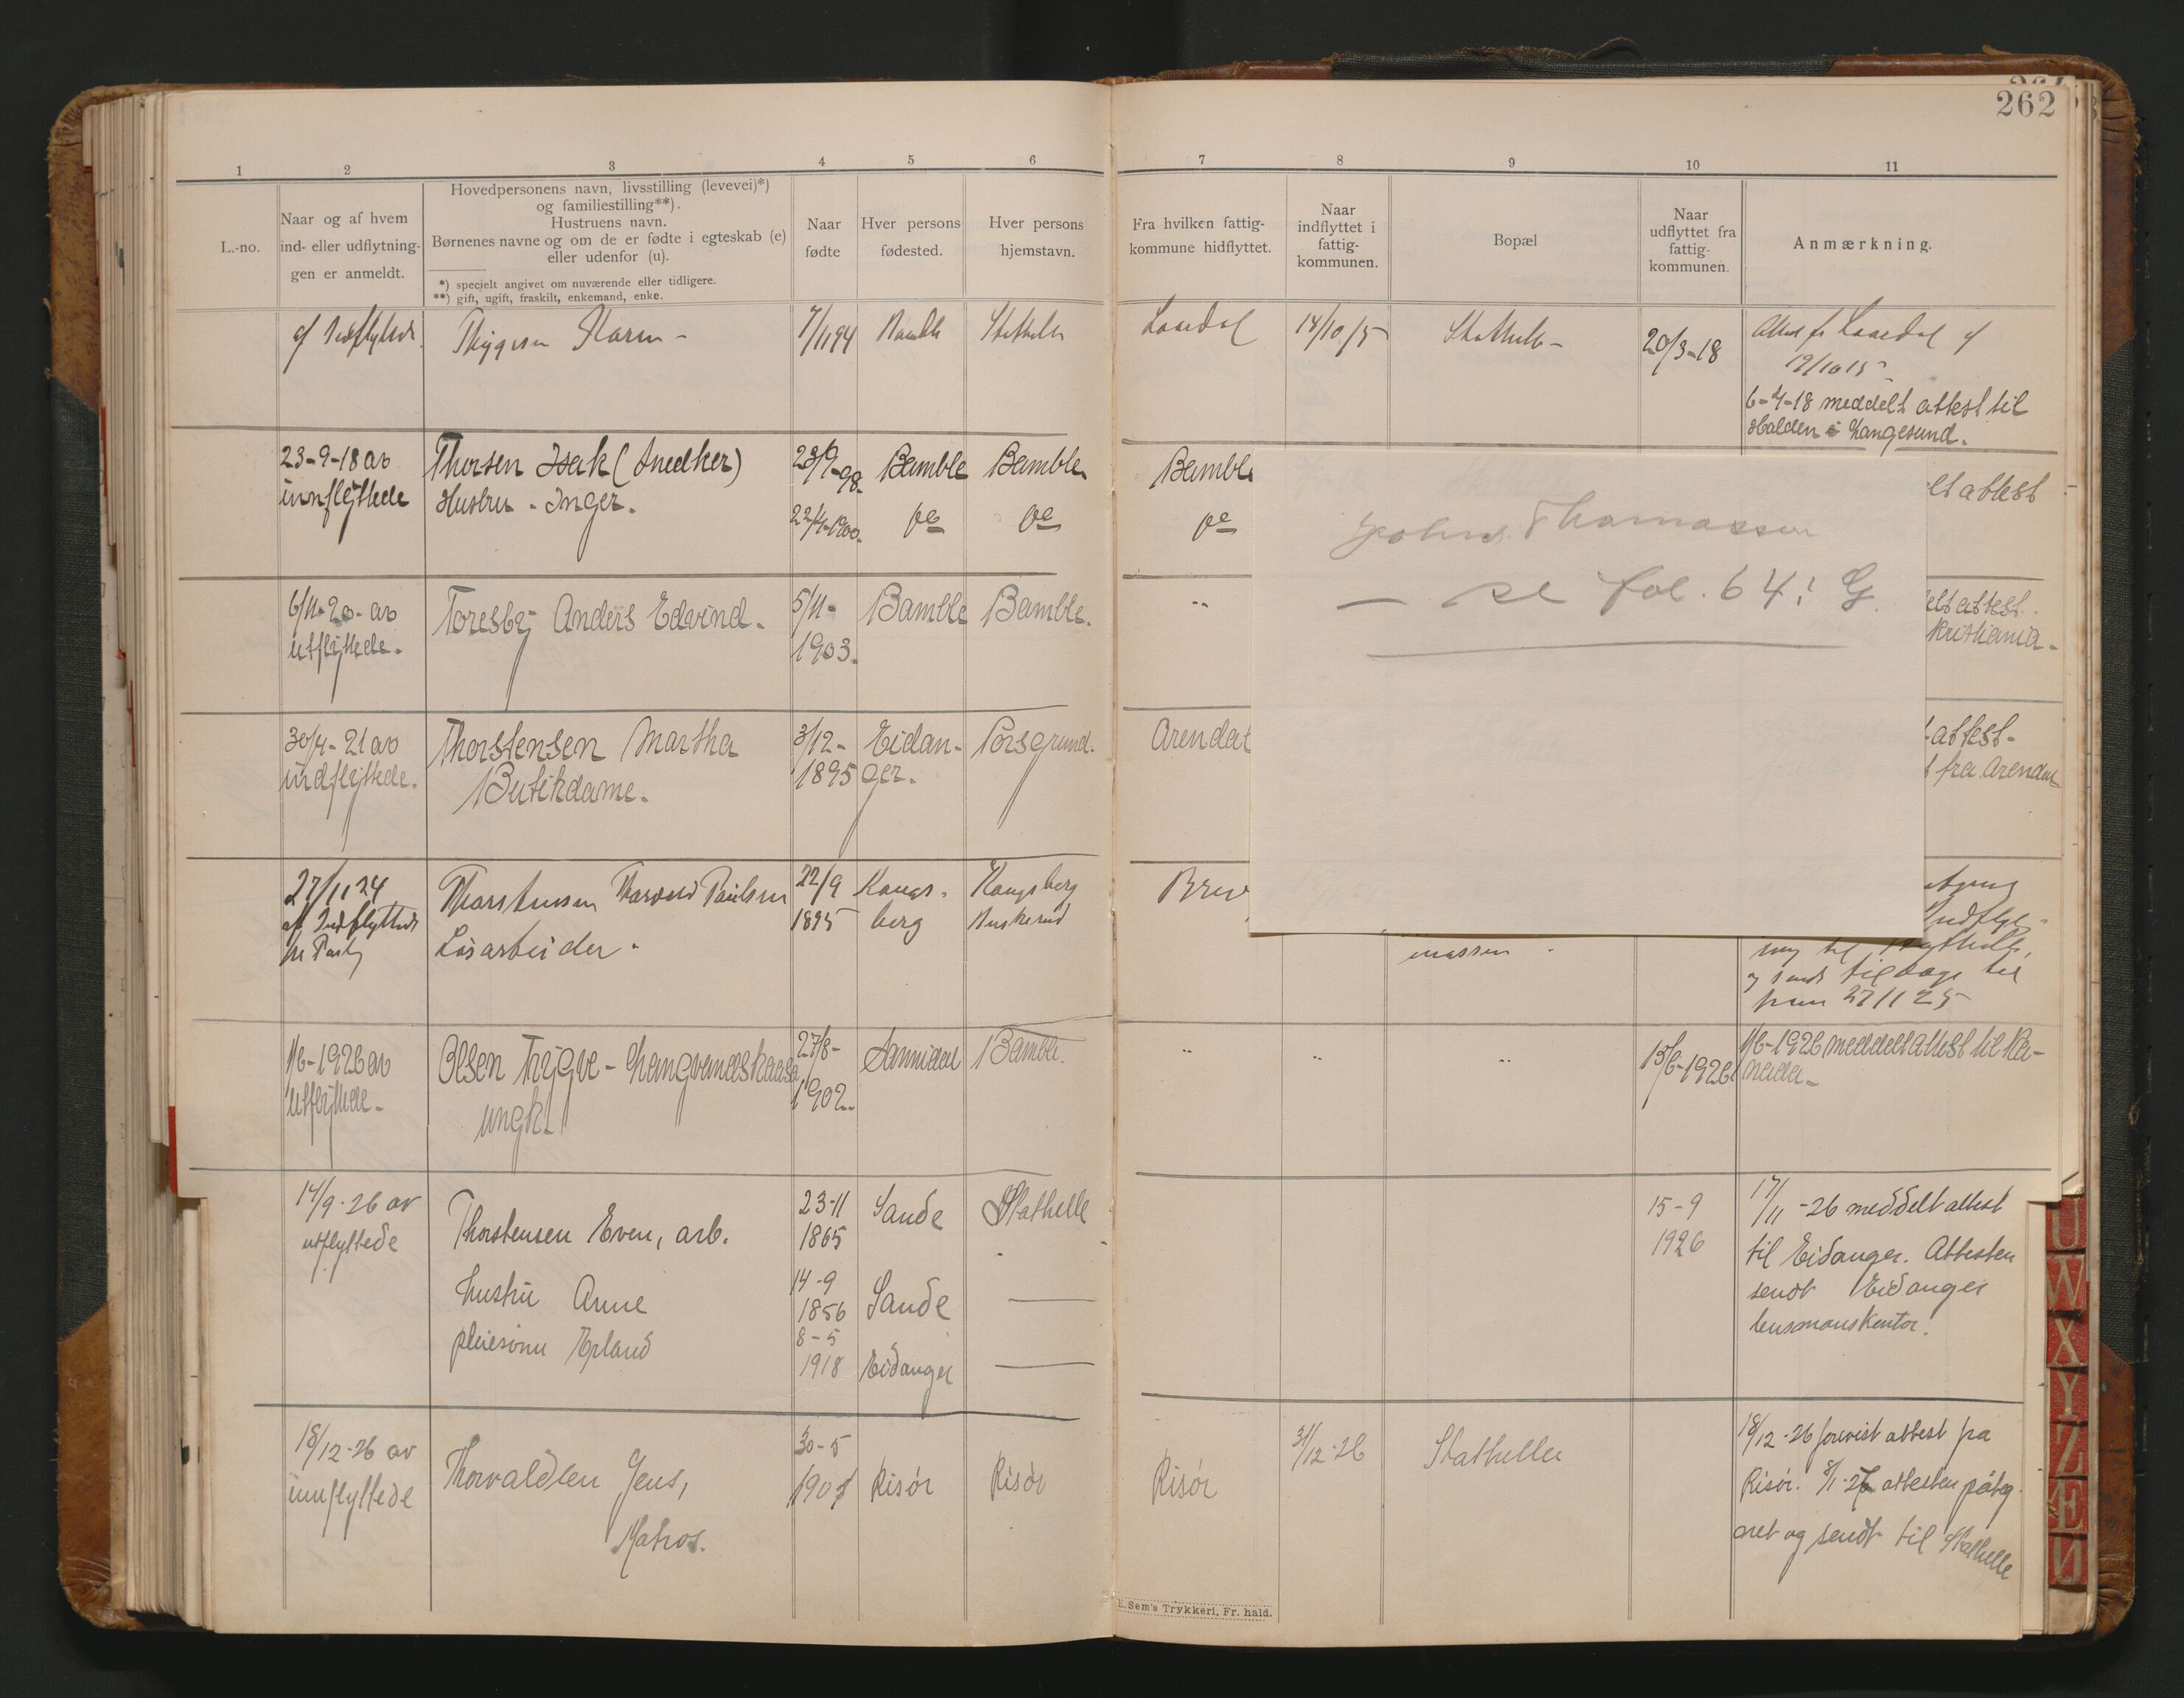 262
1 2 3 4 5 6 7 8 9 10 11
L.-no.
Naar og af hvem
ind- eller udflytning-
gen er anmeldt.
Hovedpersonens navn, livsstilling (levevei)*)
og familiestilling**).
Hustruens navn.
Børnenes navne og om de er fødte i egteskab (e)
eller udenfor (u).
*) specielt angivet om nuværende eller tidligere.
**) gift, ugift, fraskilt, enkemand, enke.
Naar
fødte
Hver persons
fødested.
Hver persons
hjemstavn.
Fra hvilken fattig-
kommune hidflyttet.
Naar
indflyttet i
fattig-
kommunen.
Bopæl
Naar
udflyttet fra
fattig-
kommunen.
Anmærkning.
af Indflyttede Thygesen Karen - 7/11 94 Bamble Stathelle
Laurdal 14/10 15 Stathelle - 20/3-18
Attest fr Laurdal af
19/10 15 -
6-4-18 meddelt attest til
Halden i Langesund.
23-9-18 av
innflyttede
Thorsen Isak (Snedker) 23/9-98. Bamble Bamble Bamble
Hustru - Inger. 22/4-1900. do do do
elt attest
John Thomassen
— se fol. 64 i G.
6/11-20- av
utflyttede.
Toresby Anders Edvind.
5/11-
1903.
Bamble Bamble.
"
elt attest.
Kristiania.
30/4-21 av
indflyttede.
Thorstensen Martha
Butikdame.
3/12-
1895
Eidan-
ger.
Porsgrund.
Arendal
attest-
fra Arendal
27/11 24
af Indflyttede
pr Post
Thorstensen Paulsen
Løsarbeider.
22/9
1895
Kongs-
berg
Kongsberg
Buskerud
Brev
massen
Indflyt-
ning til Stathelle,
og sendt tilbage til
ham 27/1 25
1/6-1926 av
utflyttede-
Olsen Trygve - Langvandskaasa
ungk.
27/8-
1902.
Sannidal Bamble.
" " "
15/6-1926
1/6-1926 meddelt attest til Ka-
nada-
14/9-26 av
utflyttede
Thorstensen Even, arb.
23-11
1865
Sande Stathelle
hustru Anne
14-9
1856
Sande
pleiesønn Erland
8-5
1918
Eidanger
15-9
1926
17/11-26 meddelt attest
til Eidanger. Attesten
sendt Eidanger
lensmanskontor.
18/12-26 av
innflyttede
Thorvaldsen Jens,
Matros.
30-5
Risør Risør
Risør 31/12-26 Stathelle
18/12-26 forevist attest fra
Risør. 8/1-27 attesten påteg-
net og sendt til Stathelle
E. Sem's Trykkeri, Fr. hald.
U
W
X
Y
Z
Æ